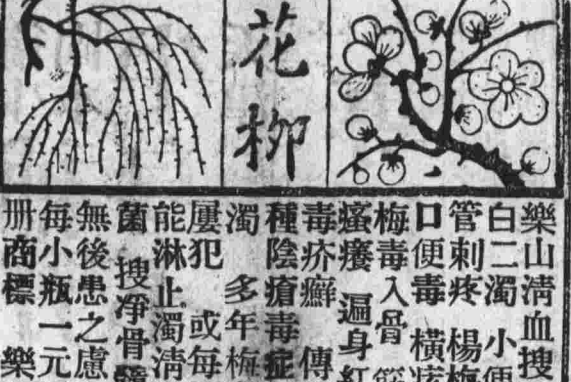 花柳
樂山淸血搜
白二濁 小便
管刺疼 楊梅
口便毒 橫痃
梅毒入骨
瘙癢 遍身紅
毒疥癬 傳
種陰瘡毒症
濁 多年梅
屢犯 或每
能淋止濁淸
菌 搜凈骨髓
無後患之慮
每小瓶一元
册商標 樂